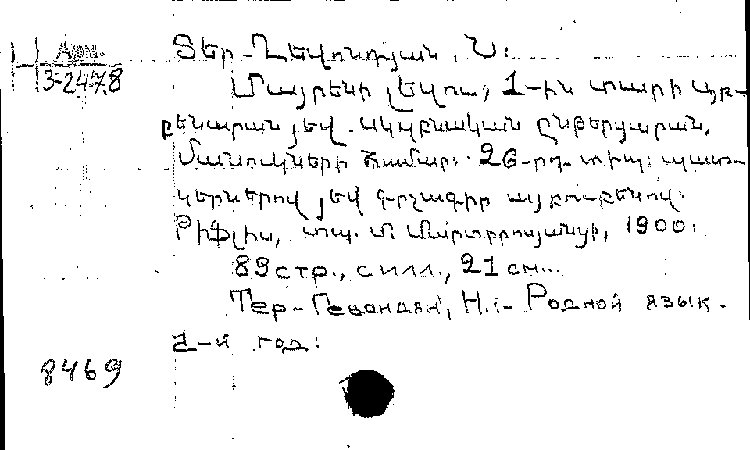 Арм.
3-2478
Տեր-Ղեվոնդյան, Ն.
Մայրենի լեզու, 1-ին տարի այբ-
բենարան յեվ ընթերցարան,
մանուկների համար։ 26-րդ տիպ։ պատ-
կերներով յեվ գլխագիր այբուբենով։
Թիֆլիս, տպ. Մ. Մարտիրոսյանցի, 1900։
89 стр., с илл., 21 см...
Тер-Гевондян, Н.:- Родной язык.
1-й год:
8469